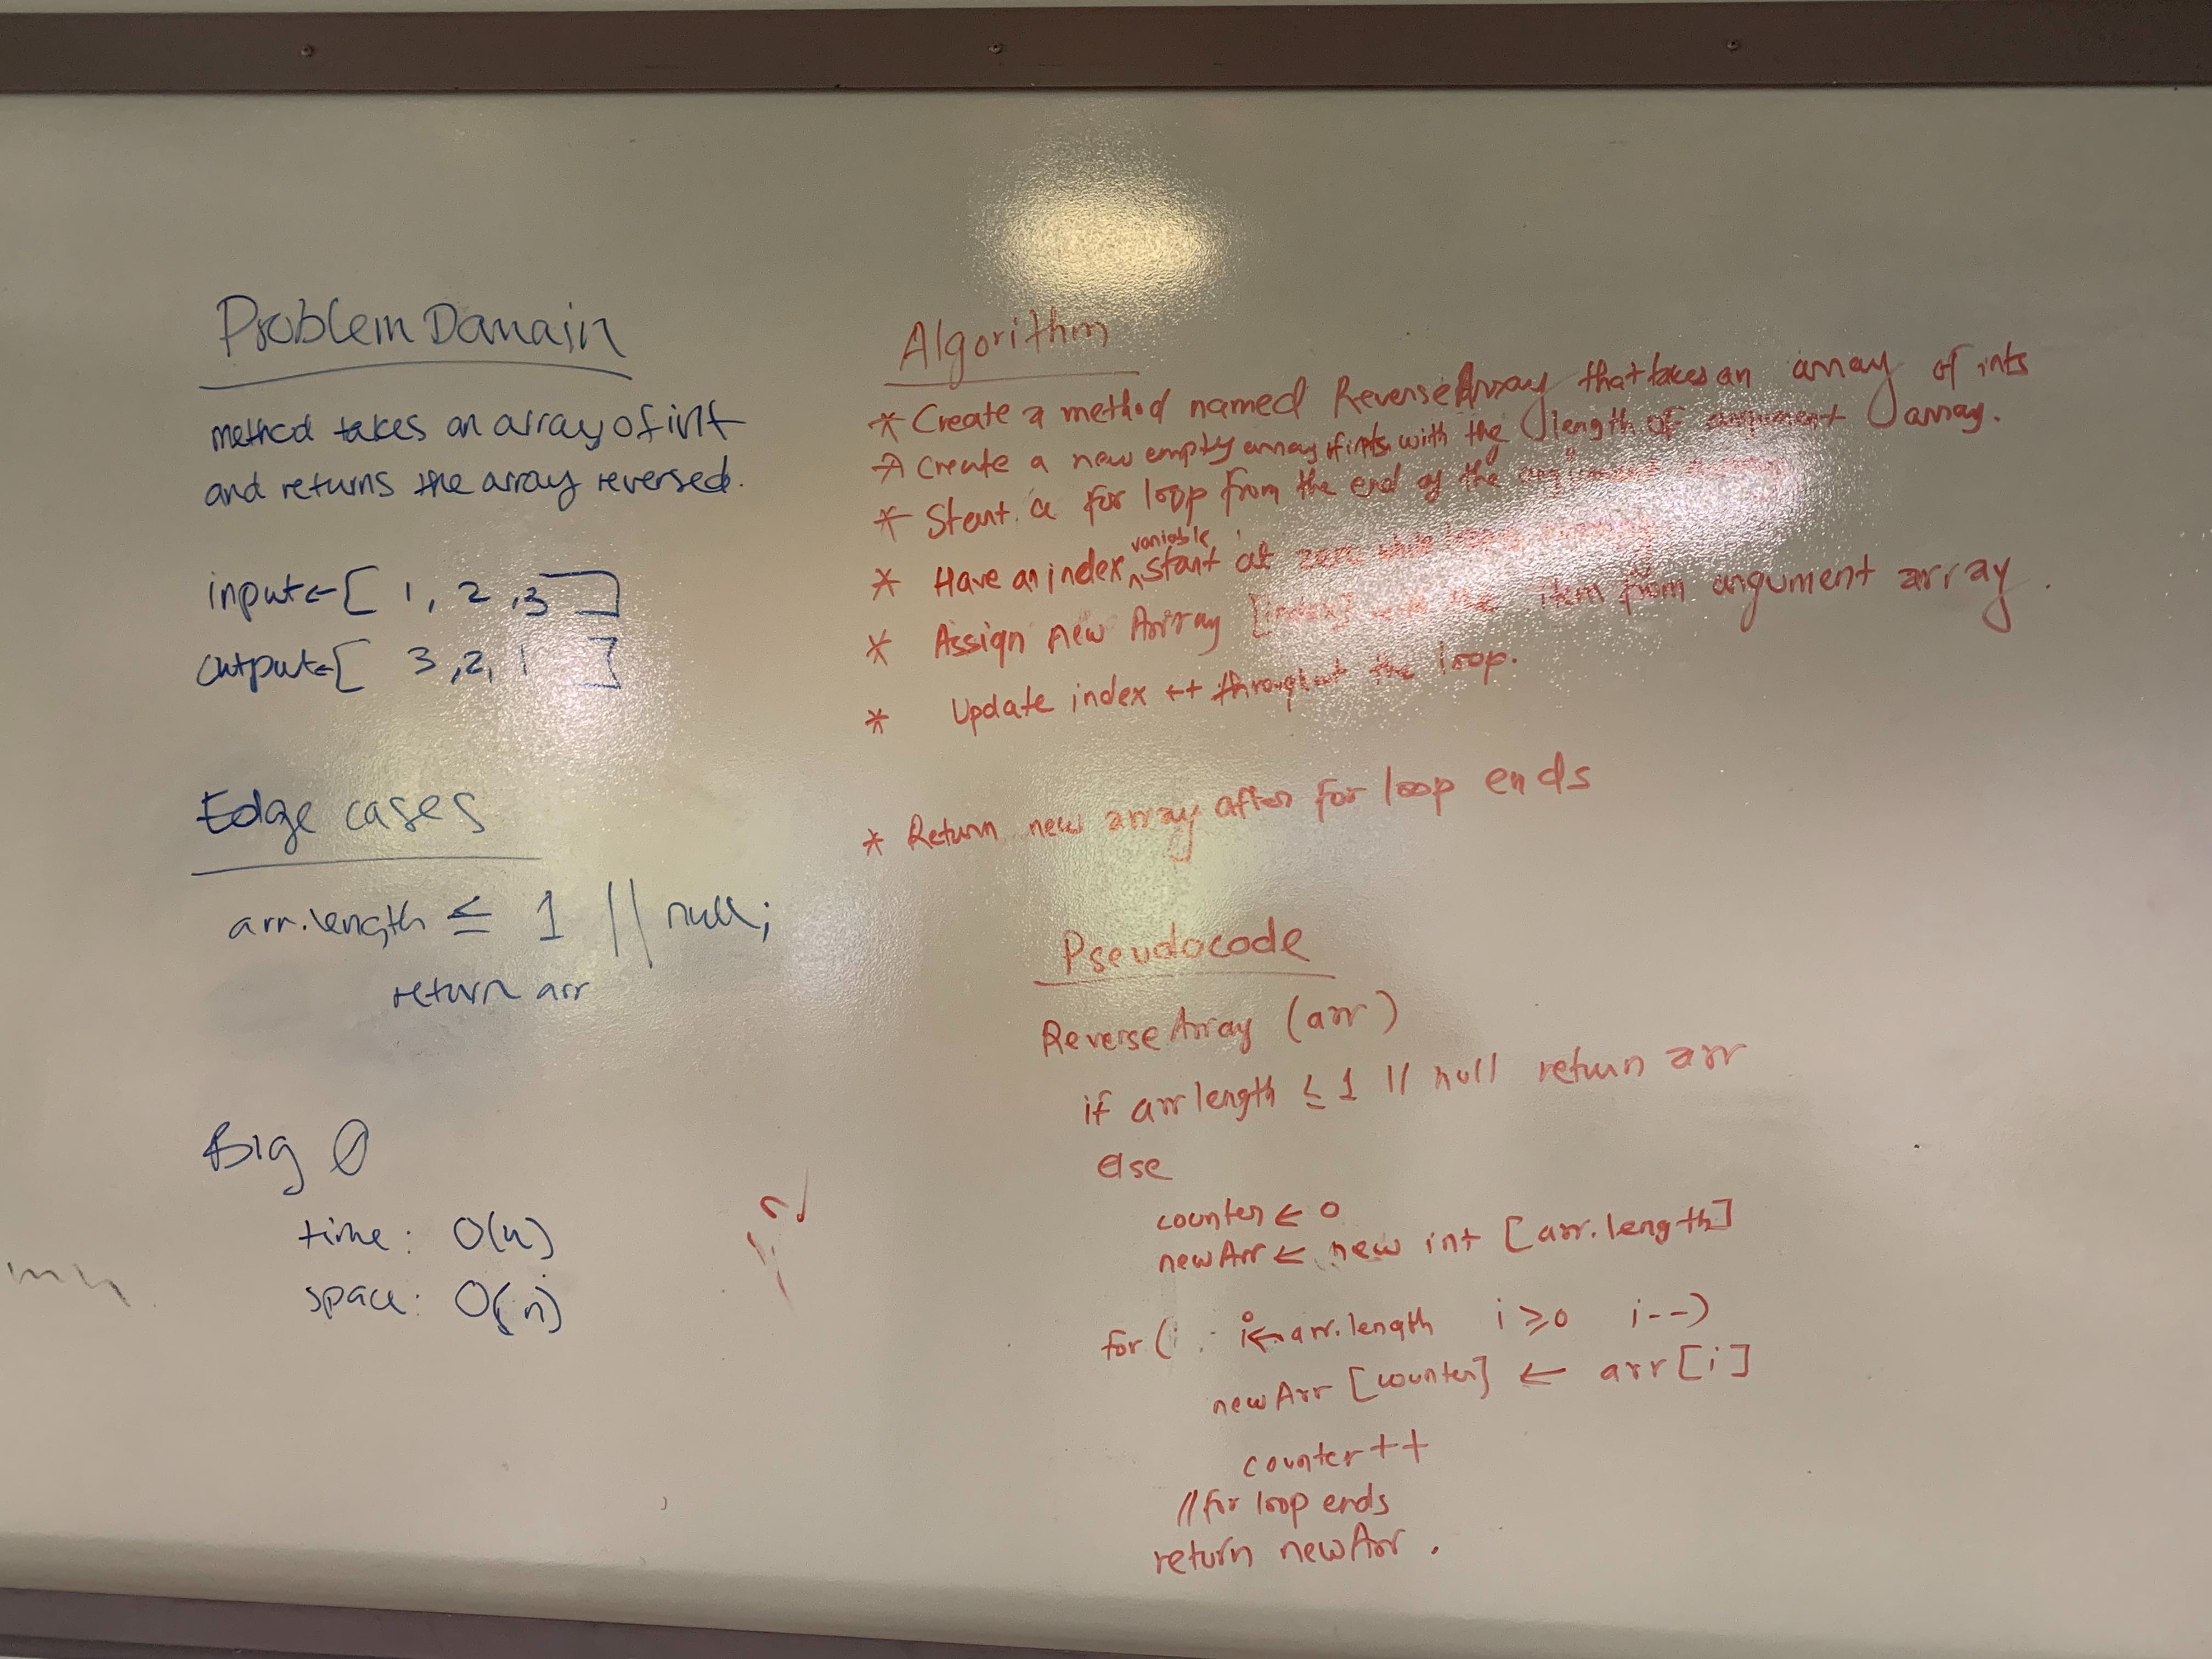 Problem Domain
method takes an array of int
and returns the array reversed.
input ← [ 1, 2, 3 ]
output ← [ 3, 2, 1 ]
Edge cases
arr.length ≤ 1 || null;
return arr
Big O
time: O(n)
space: O(n)
Algorithm
* Create a method named ReverseArray that takes an array of ints
* Create a new empty array of ints with the length of argument array.
* Start a for loop from the end of the argument array
* Have an index variable start at zero while
* Assign new Array [index] with the item from argument array.
* Update index ++ throughout the loop.
* Return new array after for loop ends
Pseudocode
ReverseArray (arr)
if arr length ≤ 1 || null return arr
else
counter ← 0
newArr ← new int [arr.length]
for (i : i ← arr.length i ≥ 0 i--)
newArr [counter] ← arr [i]
counter ++
// for loop ends
return newArr.